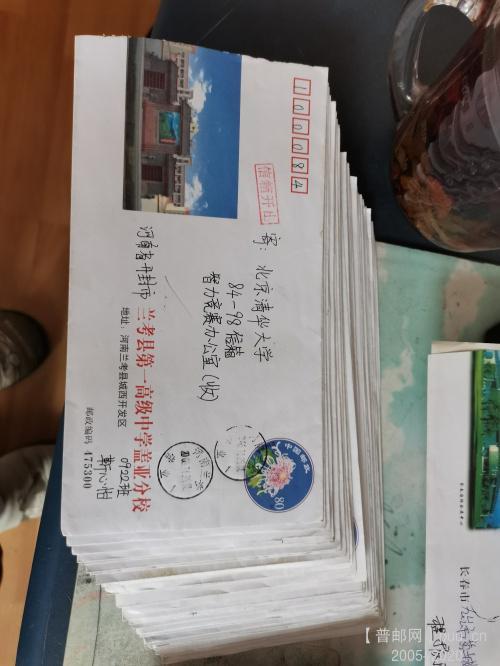 100084
信箱开出
寄：北京清华大学
84-98信箱
智力竞赛办公室（收）
中国邮政
80
河南省开封市
兰考县第一高级中学盖亚分校
地址：河南兰考县城西开发区
0922班
靳心怡
邮政编码 475300
长春市
【普邮网
2005-2020